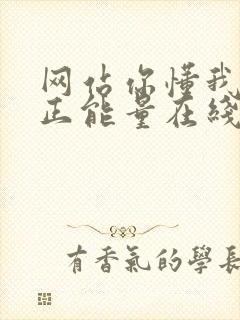 网站你懂我
正能量在线
有香氣的學長